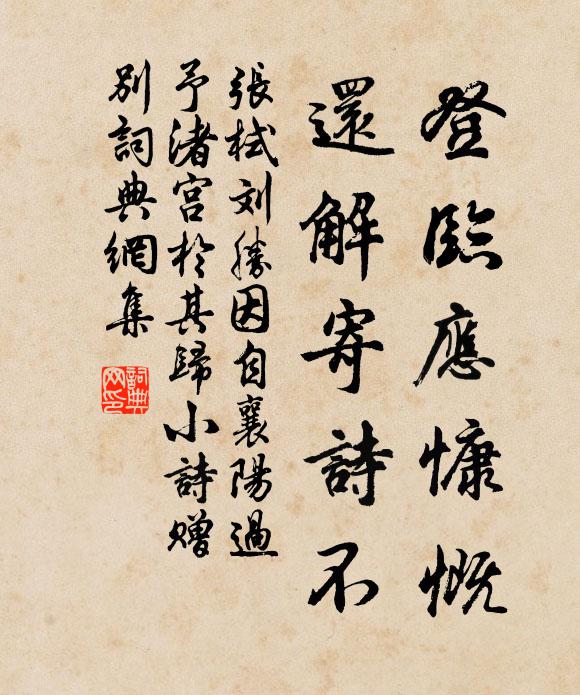 登臨應慷慨
還解寄詩不
張栻刘勝因自襄陽過
予渚宫於其歸小詩赠
别詞典網集
詞典網印